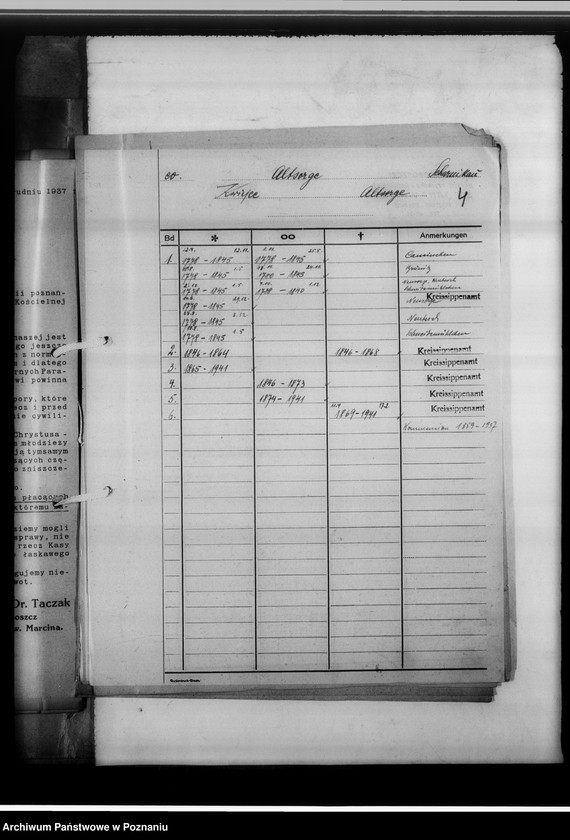 udniu 1937
ii poznań-
Kościelnej
naszej jest
go jeszcz
s norm
i dlatego
rnych Para-
wi powinna
pory, które
osz i przed
ie cywili-
Chrystusa -
młodzieży
ją tymsamym
ących czę-
o zniszcze-
o.
płacących
któremu
siemy mogli
aprawy, nie
rzecz Kasy
łaskawego
gujemy nie-
wot.
Dr. Taczak
oszcz
w. Marcina.
eo. Altsorge Scharnikau
Kwiejce Altsorge 4
Bd * ∞ † Anmerkungen
1. 1798 - 1845 1798 - 1845
1798 - 1845 1700 - 1845 Grünitz
1798 - 1845 1798 - 1840 Schneidemühlchen
1798 - 1845 Neusorge Kreissippenamt
1798 - 1845 Neuteich
1798 - 1845 Schneidemühlchen
2. 1846 - 1864 1846 - 1868 Kreissippenamt
3. 1865 - 1941 Kreissippenamt
4. 1846 - 1873 Kreissippenamt
5. 1874 - 1941 Kreissippenamt
6. 1869 - 1941 Kreissippenamt
1859 - 1937
Archiwum Państwowe w Poznaniu